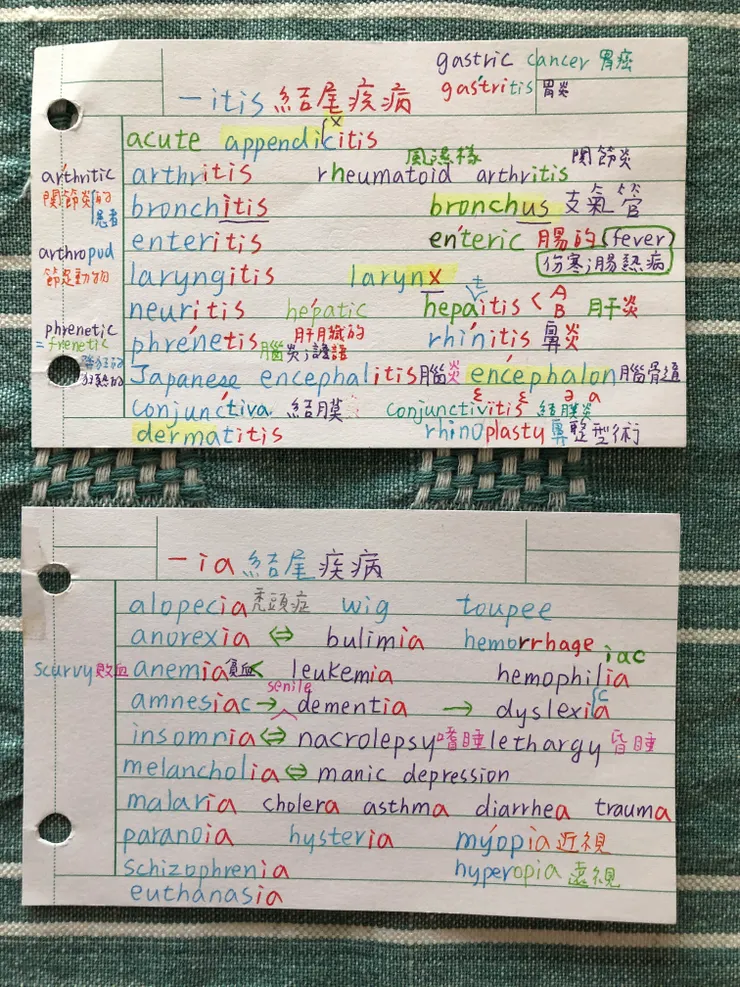 gastric cancer 胃癌
－itis 結尾疾病 gastritis 胃炎
x
acute appendicitis
風濕樣 関節炎
arthritic arthritis rheumatoid arthritis
関節炎的 患者 bronchitis bronchus 支氣管
enteritis enteric 腸的 fever
arthropod 傷寒;腸熱病
節足動物 laryngitis larynx t
neuritis hepatic hepaitis < A B 肝炎
phrenetic 肝臟的
= frenetic phrenetis rhinitis 鼻炎
腦炎;譫語
狂熱的 Japanese encephalitis 腦炎 encephalon 腦
conjunctiva 結膜 conjunctivitis 結膜炎 ə a
dermatitis rhinoplasty 鼻整型術
－ia 結尾疾病
alopecia 禿頭症 wig toupee
anorexia ⇔ bulimia hemorrhage
iac
scurvy 敗血 anemia 貧血 < leukemia hemophilia
senile c
amnesiac → dementia → dyslexia
insomnia ⇔ nacrolepsy 嗜睡 lethargy 昏睡
melancholia ⇔ manic depression
malaria cholera asthma diarrhea trauma
paranoia hysteria myopia 近視
schizophrenia hyperopia 遠視
euthanasia